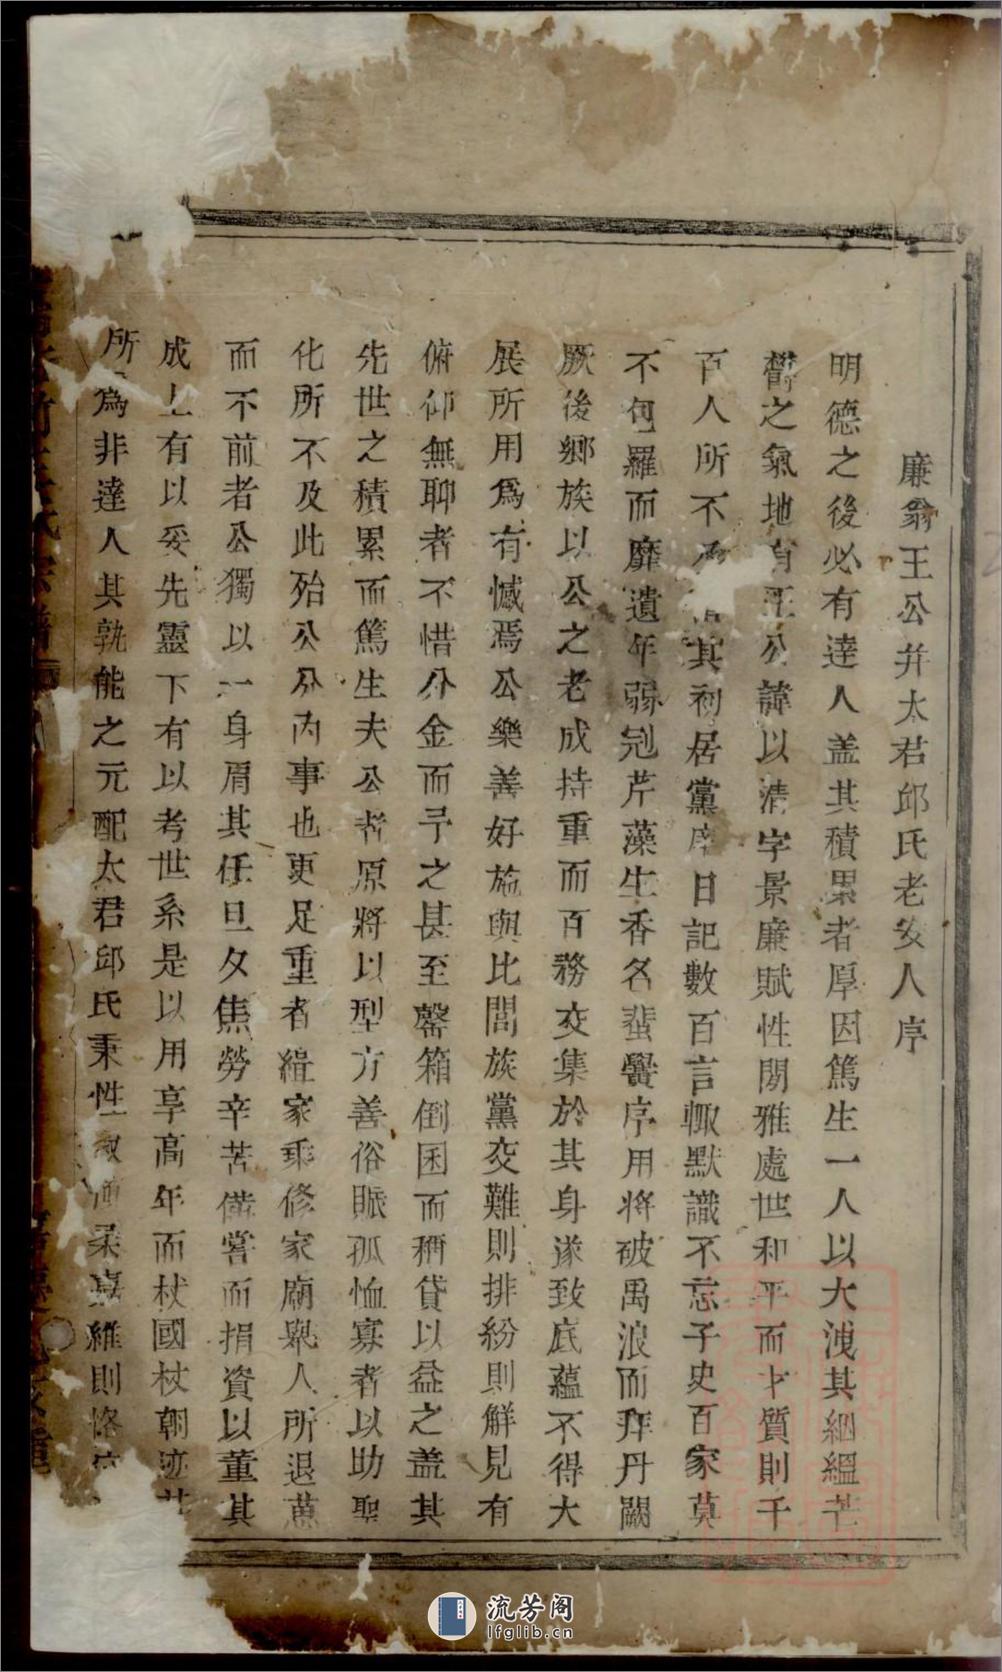 廉翁王公并太君邱氏老安人序
明德之後必有達人盖其積累者厚因篤生一人以大洩其絪縕芒
欝之氣地有王公諱以清字景廉賦性閒雅處世和平而才質則千
百人所不其初居黨序日記數百言輙默識不忘子史百家莫
不包羅而靡遺年弱冠芹藻生香名蜚黌序用將破禹浪而拜丹闕
厥後鄉族以公之老成持重而百務交集於其身遂致底蘊不得大
展所用爲有憾焉公樂善好施與比閭族黨交難則排紛則解見有
俯仰無聊者不惜分金而予之甚至罄箱倒囷而稱貸以益之盖其
先世之積累而篤生夫公者原將以型方善俗賑孤恤寡者以助聖
化所不及此殆公分内事也更足重者緝家乘修家廟衆人所退蒽
而不前者公獨以一身肩其任旦夕焦勞辛苦備嘗而捐資以董其
成上有以妥先靈下有以考世系是以用享高年而杖國杖朝迹其
所爲非達人其孰能之元配太君邱氏秉性淑柔嘉維則恪
宗譜
流芳阁
lfglib.cn